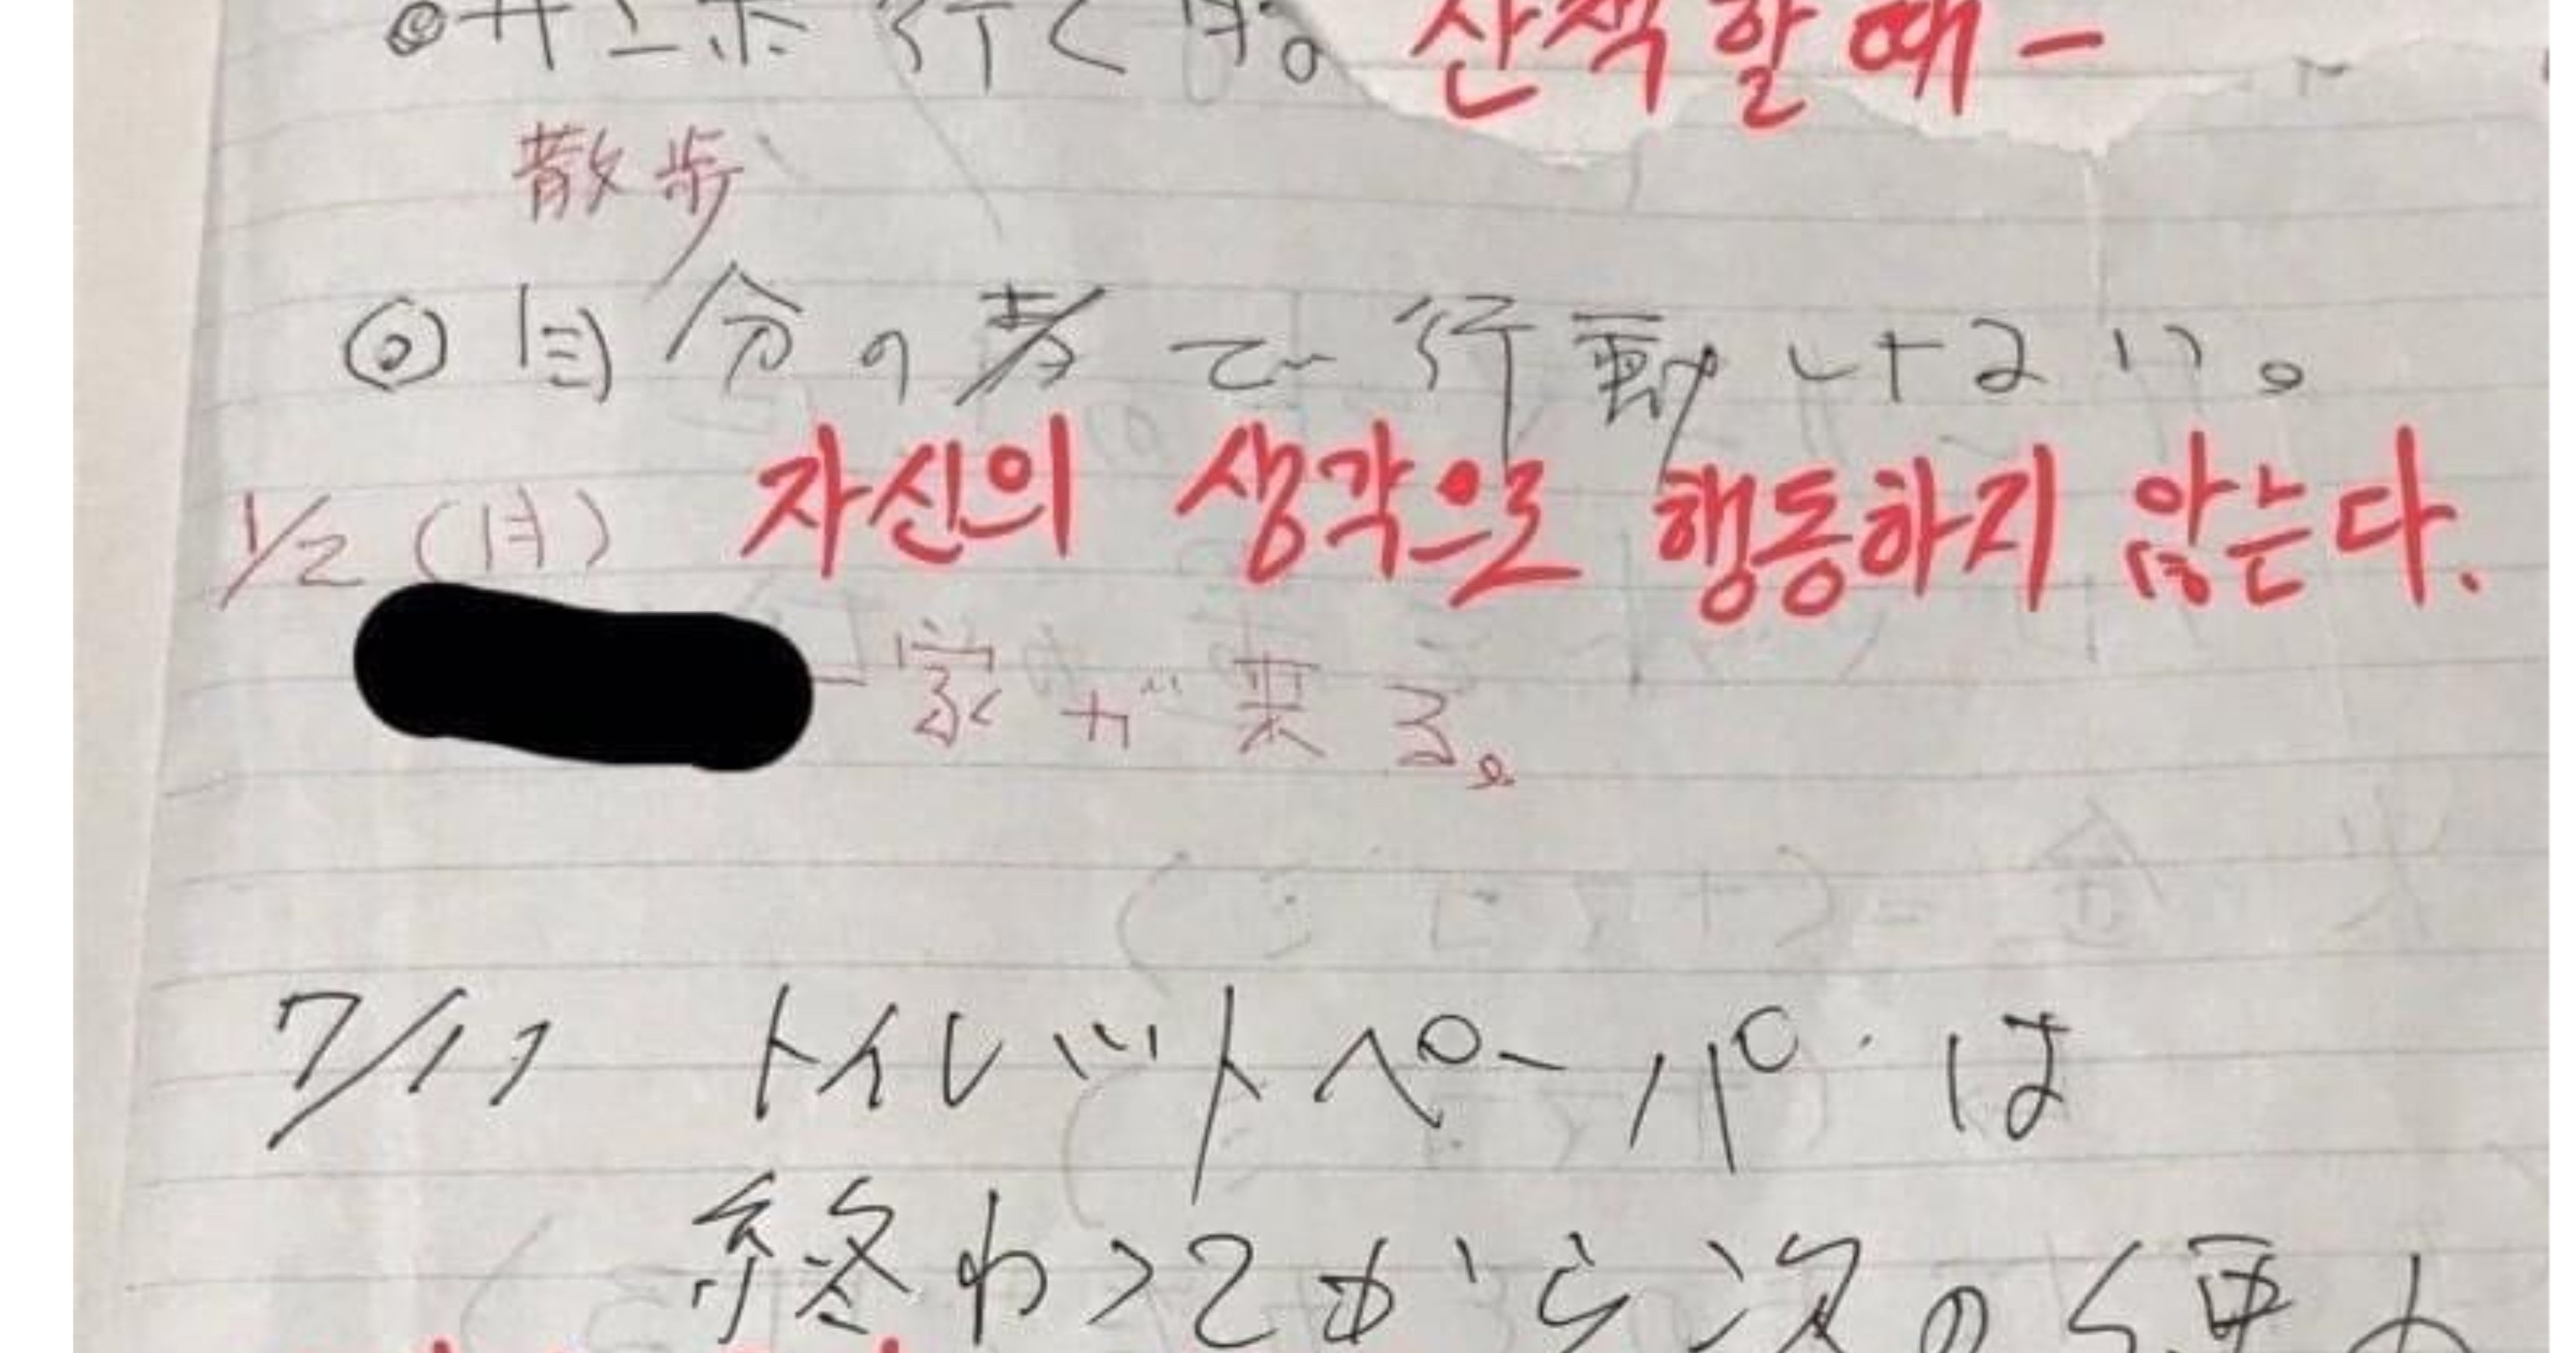 ◎サンポ行く時。
산책할 때-
散歩
◎自分の考で行動しない。
자신의 생각으로 행동하지 않는다.
1/2(月)
一家が来る。
7/11 トイレットペーパーは
終わってから次の使